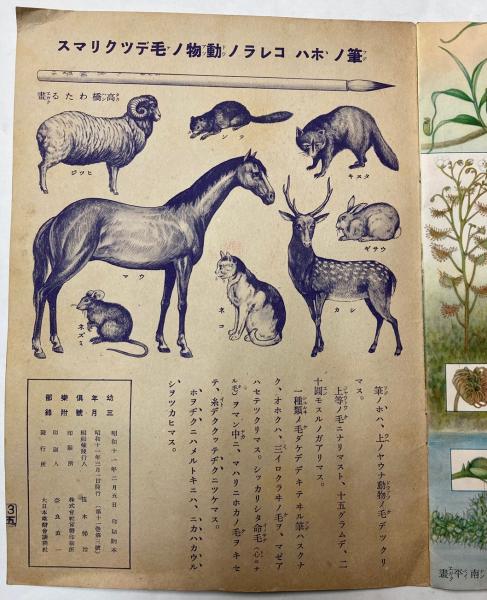 筆ノホハ コレラノ動物ノ毛デツクリマス
高橋わたる畫
タヌキ
テン
ヒツジ
ウサギ
シカ
ウマ
ネコ
ネズミ
筆ノホハ、上ノヤウナ動物ノ毛デツクリ
マス。
上等ノ毛ニナリマスト、十五グラムデ、二
十圓モスルノガアリマス。
一種類ノ毛ダケデデキテヰル筆ハスクナ
ク、オホクハ、三イロクラヰノ毛ヲ、マゼア
ハセテツクリマス。シッカリシタ命毛(心ノナ
ル毛)ヲマン中ニ、マハリニホカノ毛ヲキセ
テ、糸デククッテヂクニツケマス。
ホヲヂクニハメルトキニハ、ニカハカウル
シヲツカヒマス。
幼年倶樂部
三月號附録
昭和十一年二月五日 印刷納本
昭和十一年三月一日發行
編輯兼發行人
印刷所
印刷人 奈良直一
發行所 大日本雄辯會講談社
南平畫